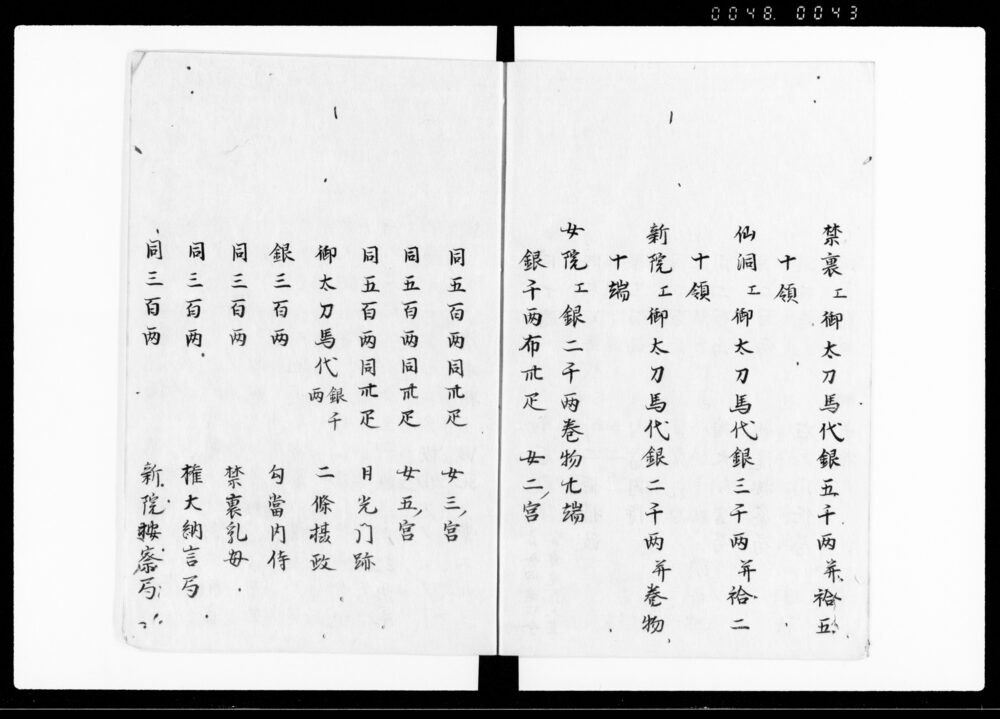 0048. 0043
禁裏江御太刀馬代銀五千両并袷五
十領
仙洞江御太刀馬代銀三千両并袷二
十領
新院江御太刀馬代銀二千両并巻物
十端
女院江銀二千両巻物廿端
銀千両布卅疋 女二ノ宮
同五百両同卅疋 女三ノ宮
同五百両同卅疋 女五ノ宮
同五百両同卅疋 日光门跡
御太刀馬代銀千両 二條摂政
銀三百両 勾當内侍
同三百両 禁裏乳母
同三百両 権大納言局
同三百両 新院按察局